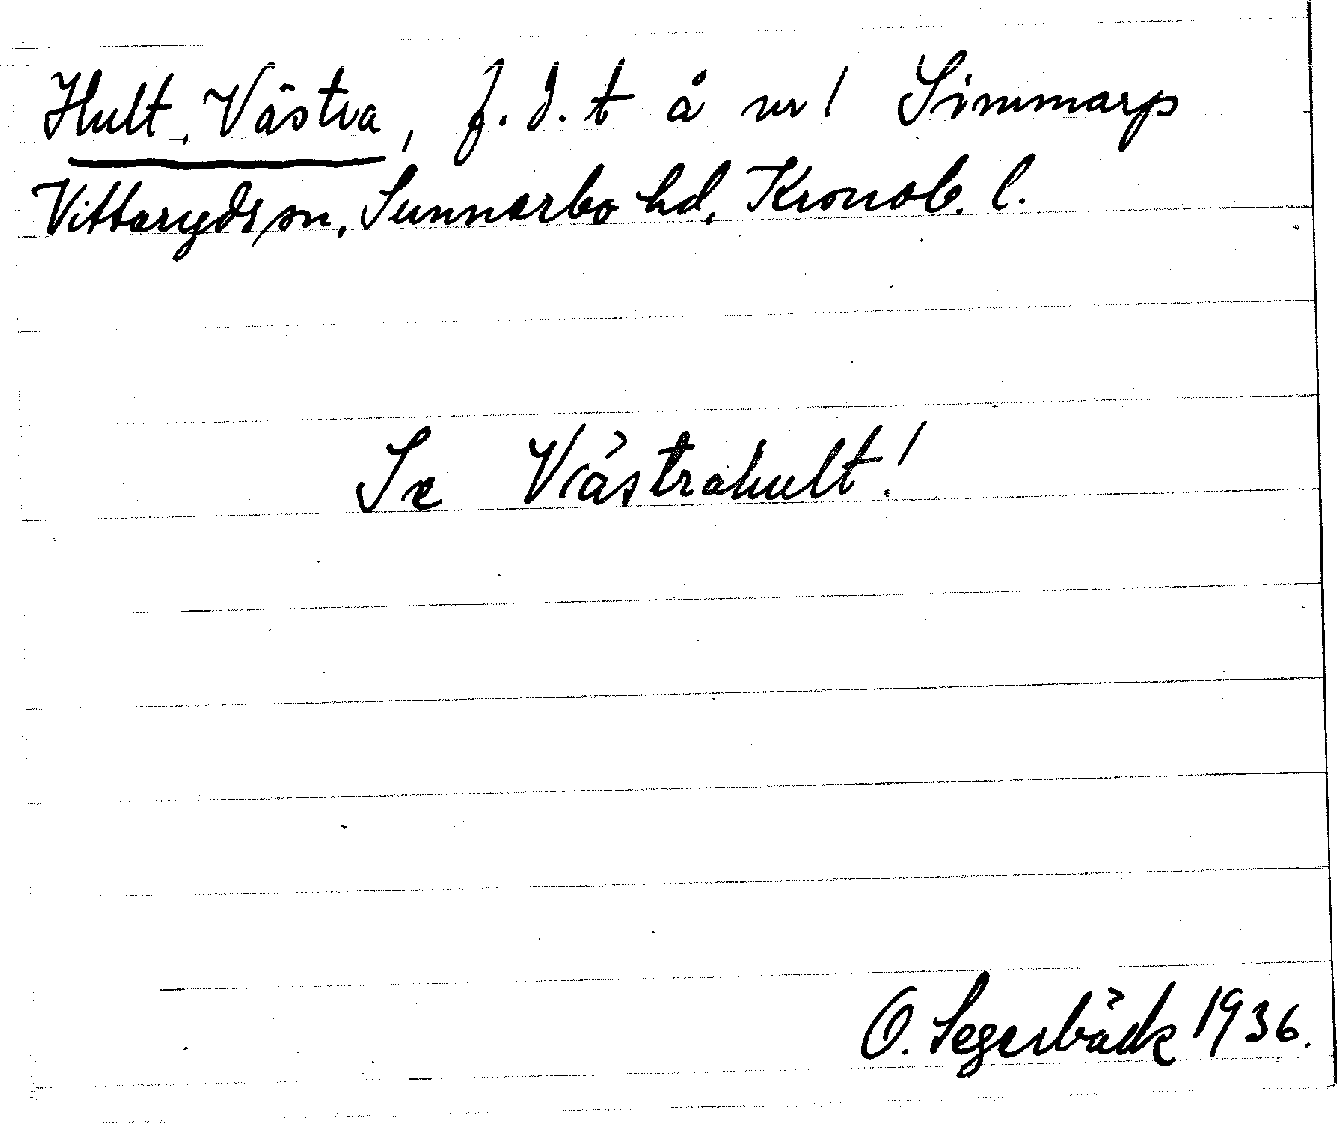 Hult, Västra, f.d.t å nr 1 Simmarp
Vittaryds sn, Sunnerbo hd, Kronob. l.
Se Västrahult!
O. Segerbäck 1936.